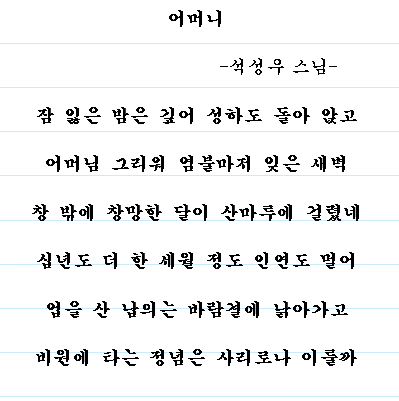 어머니
-석성우 스님-
잠 잃은 밤은 깊어 성하도 돌아 앉고
어머님 그리워 염불마저 잊은 새벽
창 밖에 창망한 달이 산마루에 걸렸네
십년도 더 한 세월 정도 인연도 멀어
업을 산 남의는 바람결에 낡아가고
비원에 타는 정념은 사리로나 이룰까